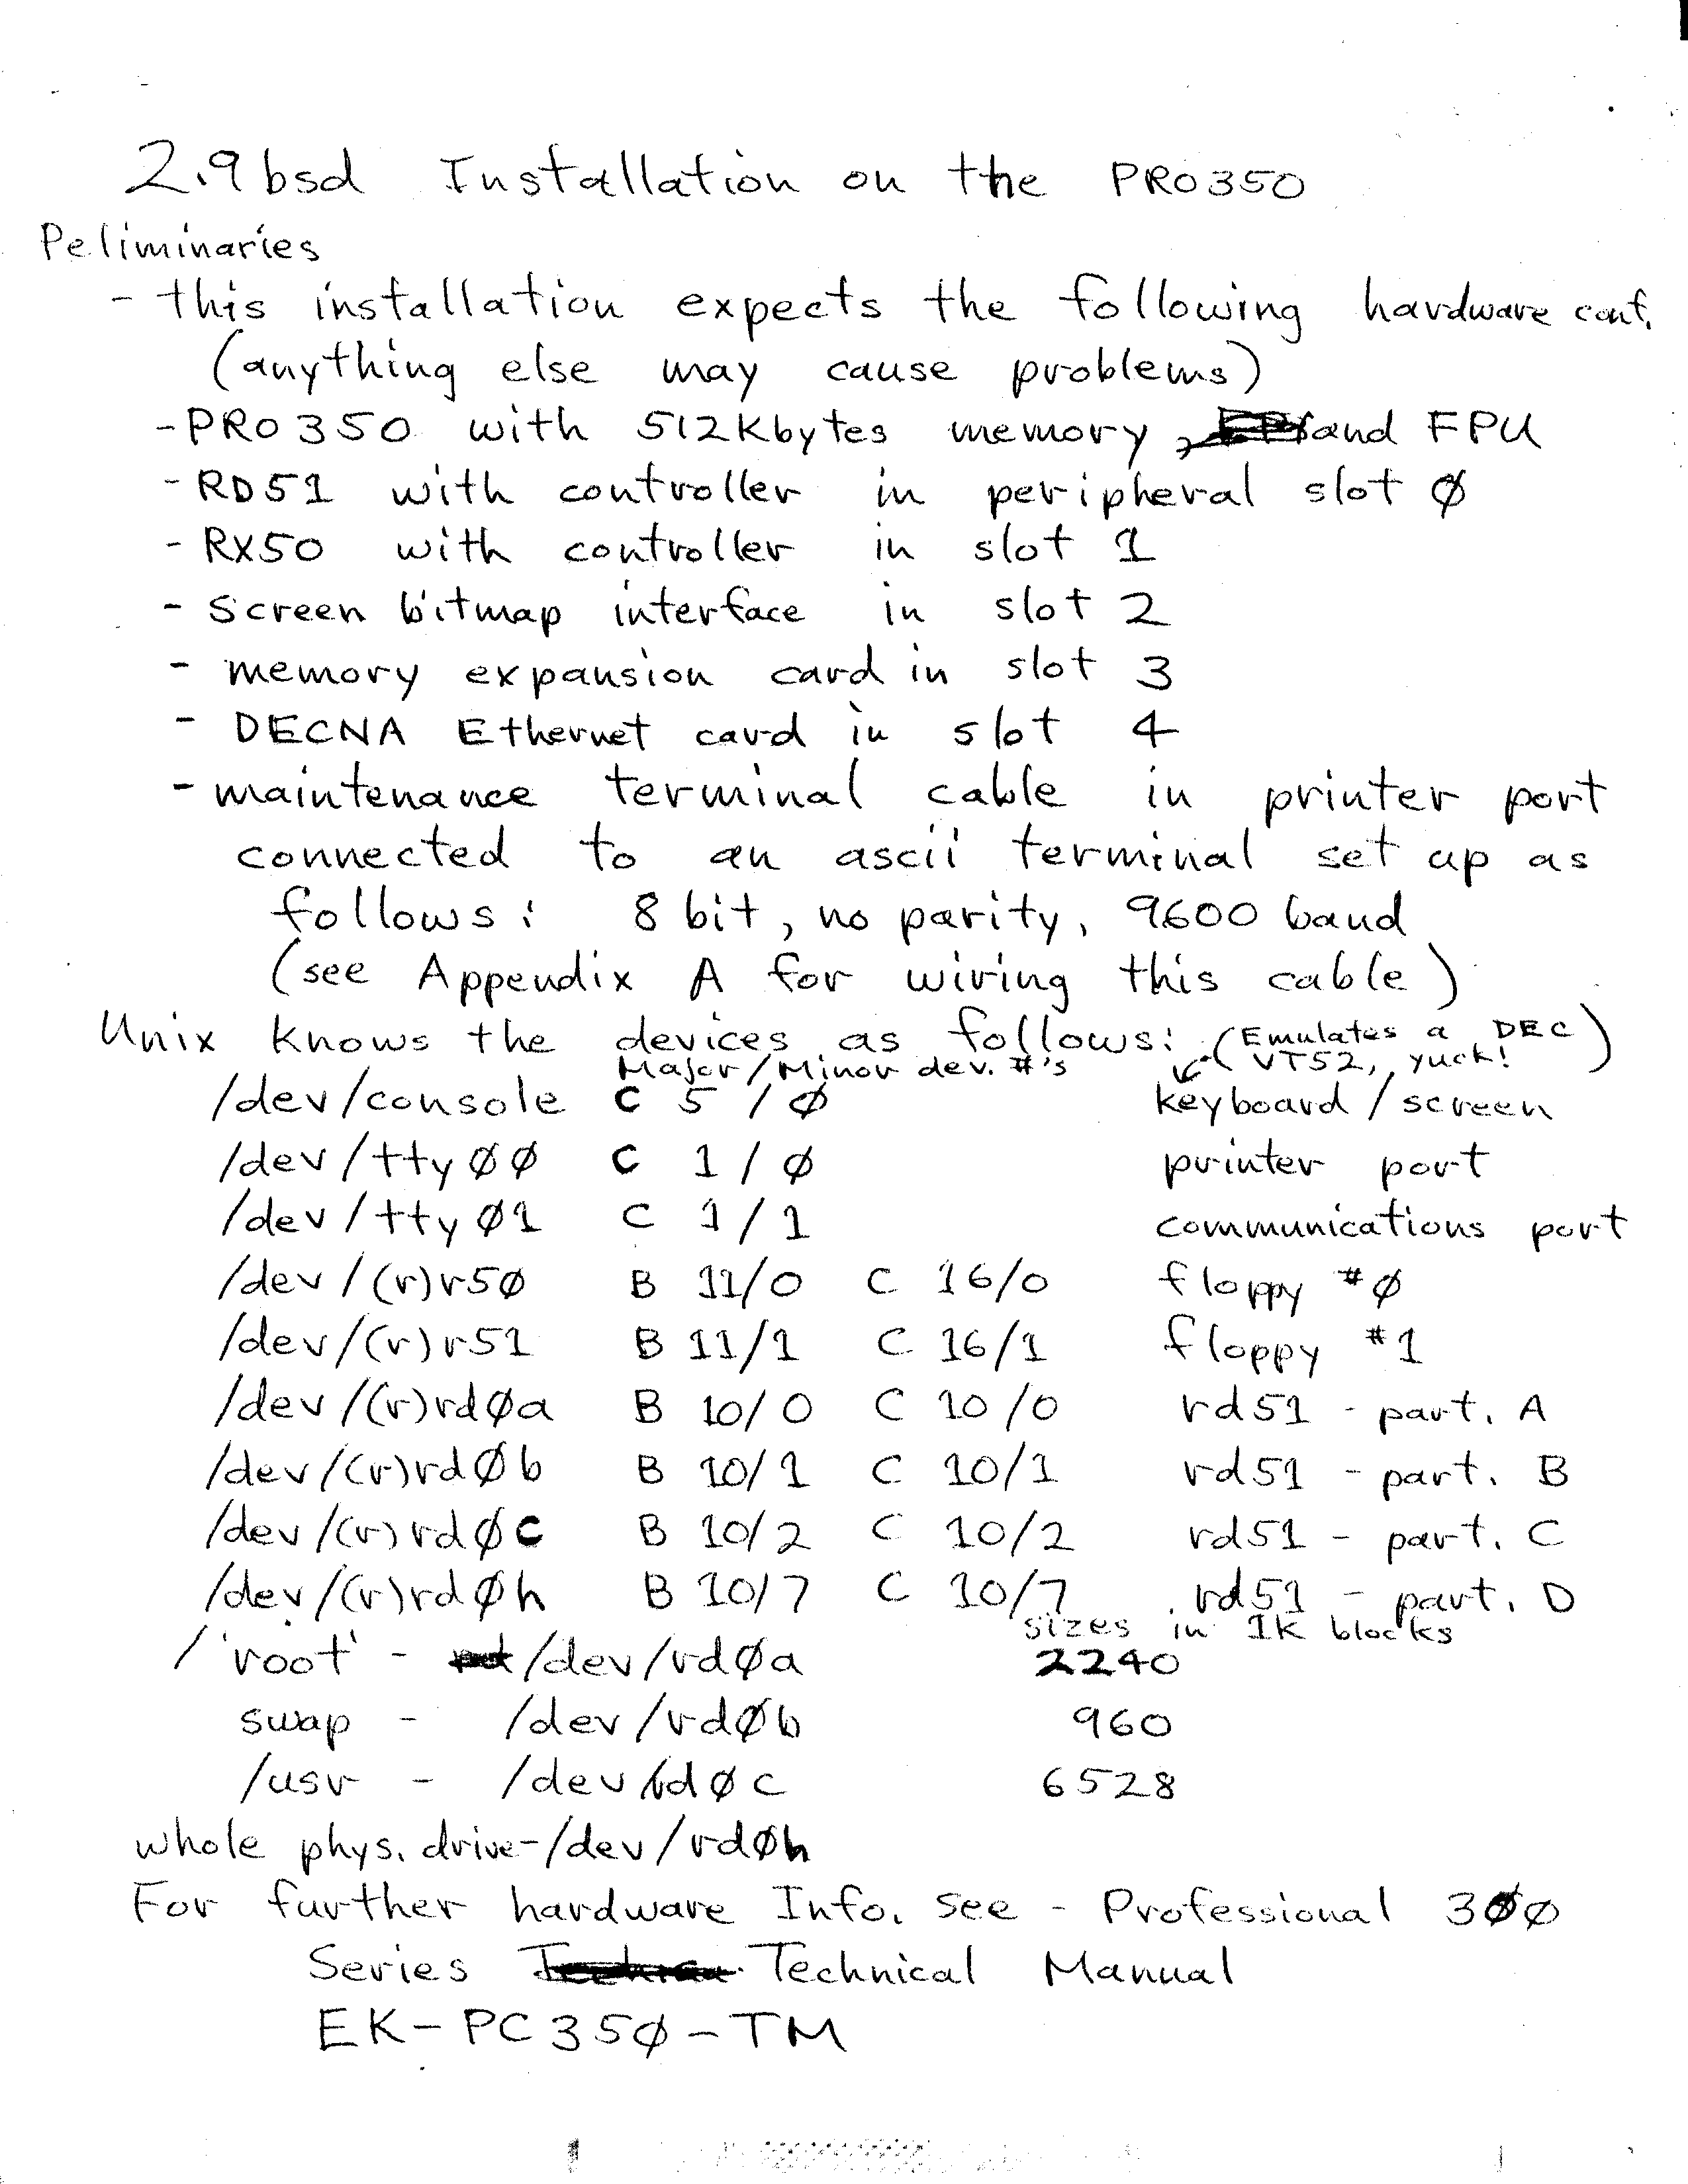 2.9bsd Installation on the PRO350
Peliminaries
- this installation expects the following hardware conf.
(anything else may cause problems)
- PRO350 with 512Kbytes memory, and FPU
- RD51 with controller in peripheral slot Ø
- RX50 with controller in slot 1
- Screen bitmap interface in slot 2
- memory expansion card in slot 3
- DECNA Ethernet card in slot 4
- maintenance terminal cable in printer port
connected to an ascii terminal set up as
follows: 8 bit, no parity, 9600 baud
(see Appendix A for wiring this cable)
Unix knows the devices as follows: (Emulates a DEC
Major/Minor dev. #'s VT52, yuck!)
/dev/console C 5/Ø keyboard/screen
/dev/ttyØØ C 1/Ø printer port
/dev/ttyØ1 C 1/1 communications port
/dev/(r)r5Ø B 11/0 C 16/0 floppy #Ø
/dev/(r)r51 B 11/1 C 16/1 floppy #1
/dev/(r)rdØa B 10/0 C 10/0 rd51 - part. A
/dev/(r)rdØb B 10/1 C 10/1 rd51 - part. B
/dev/(r)rdØc B 10/2 C 10/2 rd51 - part. C
/dev/(r)rdØh B 10/7 C 10/7 rd51 - part. D
sizes in 1K blocks
/ 'root' - /dev/rdØa 2240
swap - /dev/rdØb 960
/usr - /dev/rdØc 6528
whole phys. drive-/dev/rdØh
For further hardware Info. see - Professional 3ØØ
Series Technical Manual
EK-PC35Ø-TM